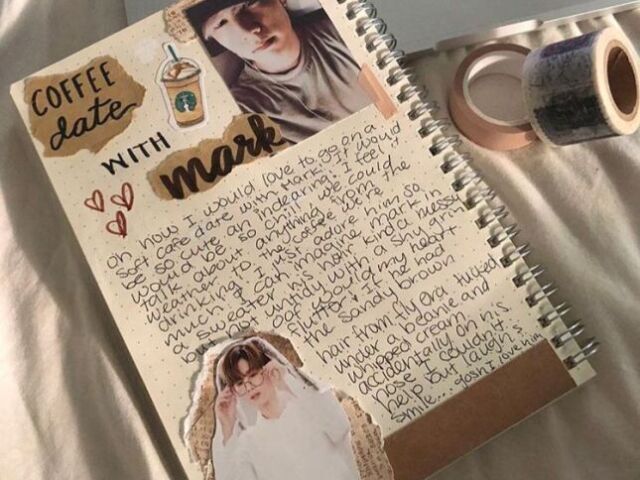 COFFEE
date
WITH
mark
oh how I would love to go on a
soft cafe date with Mark! It would
be so cute an indearing. I feel it
would be so chill, we could
talk about anything from the
weather to the coffee were
drinking I just adore him so
much, I can imagine mark in
a sweater his hair kinda messy
but not untidy with a shy grin
ooof would my heart
flutter & if he had
the sandy brown
hair from fly era tucked
under a beanie and
whipped cream
accidentally on his
nose I couldn't
help but laugh &
smile... gosh I love him